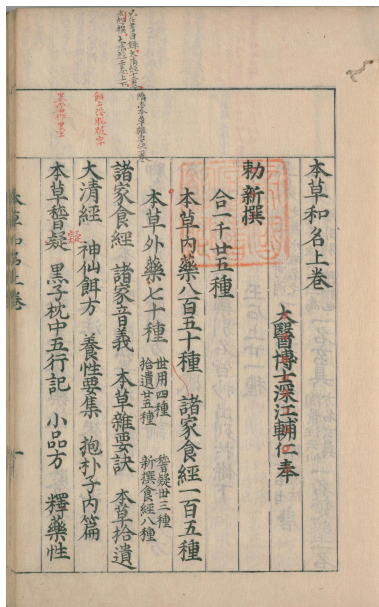 本草和名上卷
大醫博士深江輔仁奉
勅新撰
合一千廿五種
本草內藥八百五十種 諸家食經一百五種
本草外藥七十種 世用四種 拾遺廿五種 䅽疑卅三種 新撰食經八種
諸家食經 諸家音義 本草雜要訣 本草拾遺
大清經 神仙餌方 養性要集 抱朴子內篇
本草稽疑 黑子枕中五行記 小品方 釋藥性
本草和名上卷 一